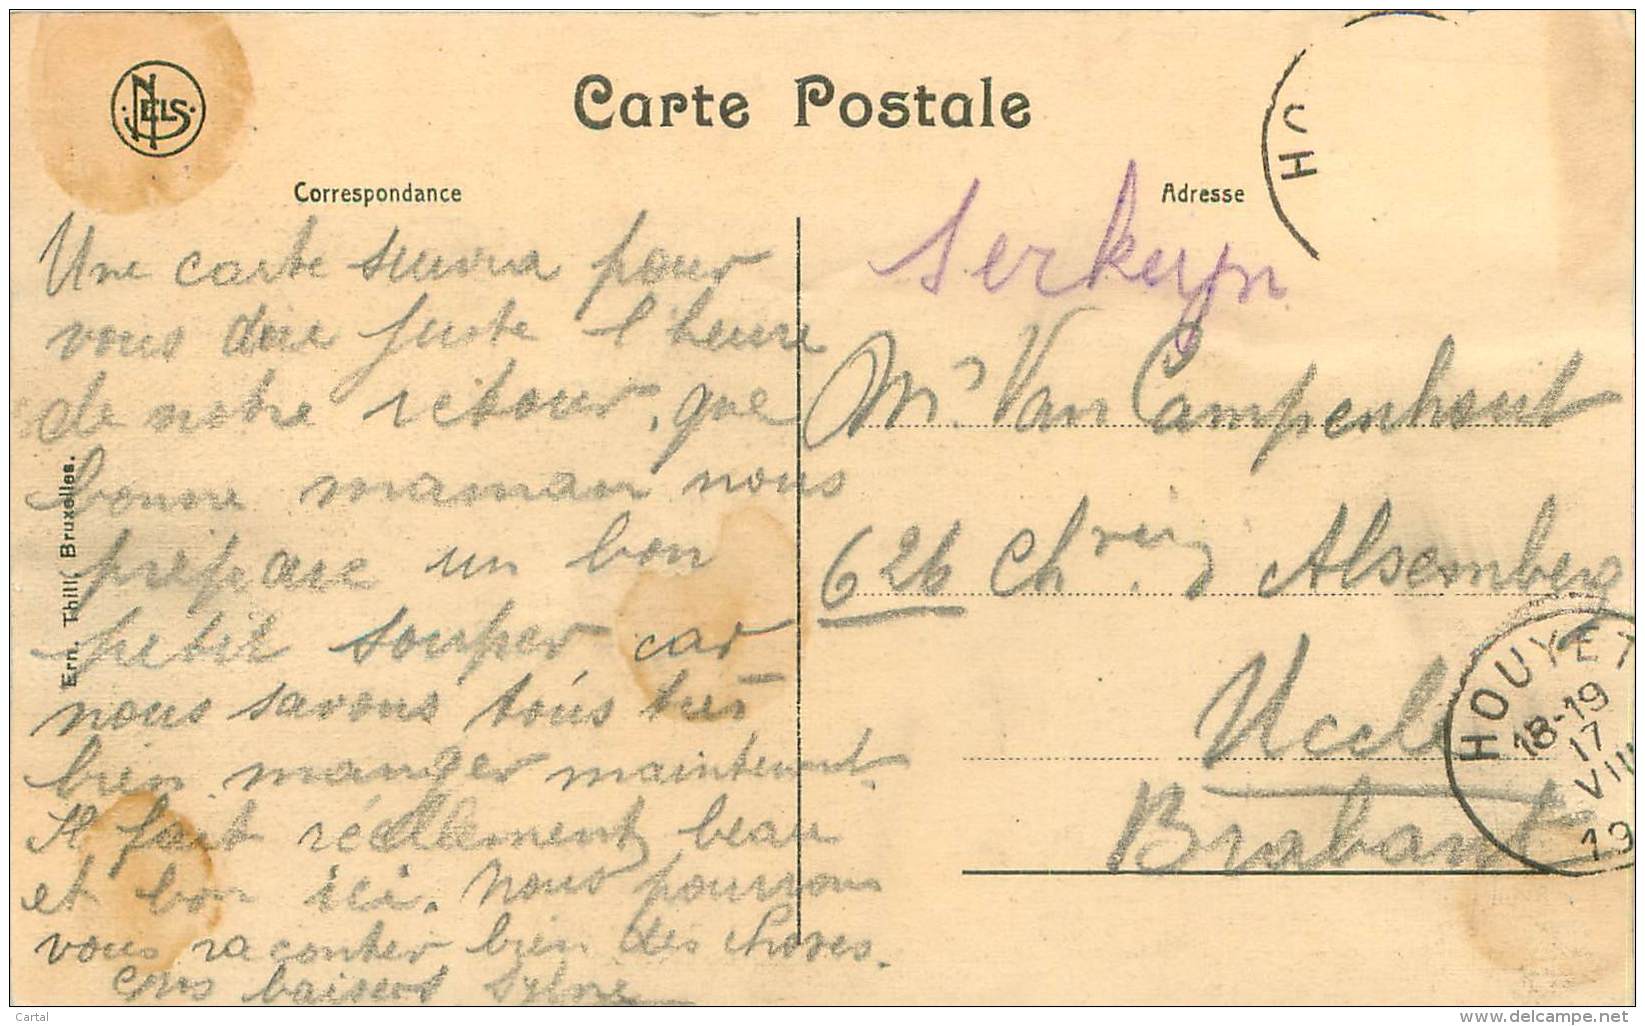 NELS
Carte Postale
Correspondance
Adresse
Une carte suivra pour
vous dire juste l'heure
de notre retour, que
bonne maman nous
prépare un bon
petit souper car
nous savons tous très
bien manger maintenant.
Il fait réellement beau
et bon ici. Nous pourrons
vous raconter bien des choses.
baisers
Ern. Thill, Bruxelles.
Serkeyn
Mr Van Campenhout
626 Ch Alsemberg
Uccle
Brabant
CH
HOUYET
18-19
17
VIII
19
Cartal
www.delcampe.net